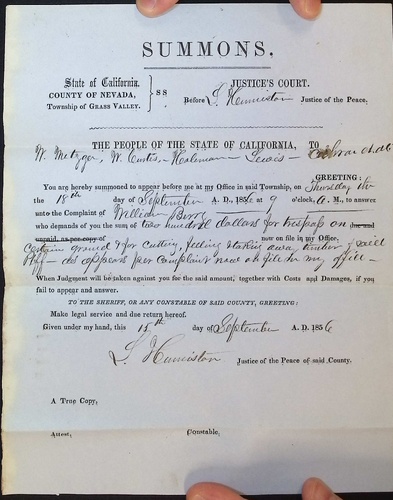 SUMMONS.
State of California, } ss
COUNTY OF NEVADA,
Township of GRASS VALLEY.
JUSTICE'S COURT.
Before S. Hamiston Justice of the Peace.
THE PEOPLE OF THE STATE OF CALIFORNIA, TO
W. Metzger, W. Curtis – – Lewis –
GREETING:
You are hereby summoned to appear before me at my Office in said Township, on Thursday the
the 18th day of September A. D., 1856 at 9 o'clock, A. M., to answer
unto the Complaint of William Berry
who demands of you the sum of two hundred dollars for trespass on due and
unpaid, as per copy of certain ground & for cutting, felling & taking away timber of said now on file in my Office.
Plff – as appears per complaint now on file in my office –
When Judgment will be taken against you for the said amount, together with Costs and Damages, if you
fail to appear and answer.
TO THE SHERIFF, OR ANY CONSTABLE OF SAID COUNTY, GREETING:
Make legal service and due return hereof.
Given under my hand, this 15th day of September A. D. 1856
S. Hamiston Justice of the Peace of said County.
A True Copy,
Attest, Constable,